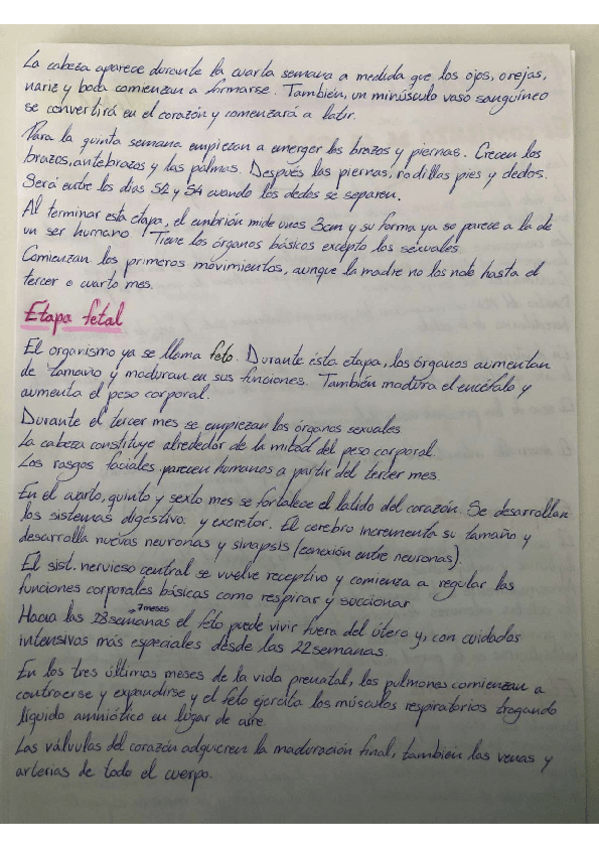 La cabeza aparece durante la cuarta semana a medida que los ojos, orejas,
nariz y boca comienzan a formarse. También, un minúsculo vaso sanguíneo
se convertirá en el corazón y comenzará a latir.
Para la quinta semana empiezan a emerger los brazos y piernas. Crecen los
brazos, antebrazos y las palmas. Después las piernas, rodillas pies y dedos.
Será entre los días 52 y 54 cuando los dedos se separen.
Al terminar esta etapa, el embrión mide unos 3cm y su forma ya se parece a la de
un ser humano. Tiene los órganos básicos excepto los sexuales.
Comienzan los primeros movimientos, aunque la madre no los note hasta el
tercer o cuarto mes.
Etapa fetal
El organismo ya se llama feto. Durante ésta etapa, los órganos aumentan
de tamaño y maduran en sus funciones. También madura el encéfalo y
aumenta el peso corporal.
Durante el tercer mes se empiezan los órganos sexuales
La cabeza constituye alrededor de la mitad del peso corporal.
Los rasgos faciales parecen humanos a partir del tercer mes.
En el cuarto, quinto y sexto mes se fortalece el latido del corazón. Se desarrollan
los sistemas digestivo y excretor. El cerebro incrementa su tamaño y
desarrolla nuevas neuronas y sinapsis (conexión entre neuronas).
El sist. nervioso central se vuelve receptivo y comienza a regular las
funciones corporales básicas como respirar y succionar
Hacia las 28 semanas → 7 meses el feto puede vivir fuera del útero y, con cuidados
intensivos más especiales desde las 22 semanas.
En los tres últimos meses de la vida prenatal, los pulmones comienzan a
contraerse y expandirse y el feto ejercita los músculos respiratorios tragando
líquido amniótico en lugar de aire.
Las válvulas del corazón adquieren la maduración final, también las venas y
arterias de todo el cuerpo.